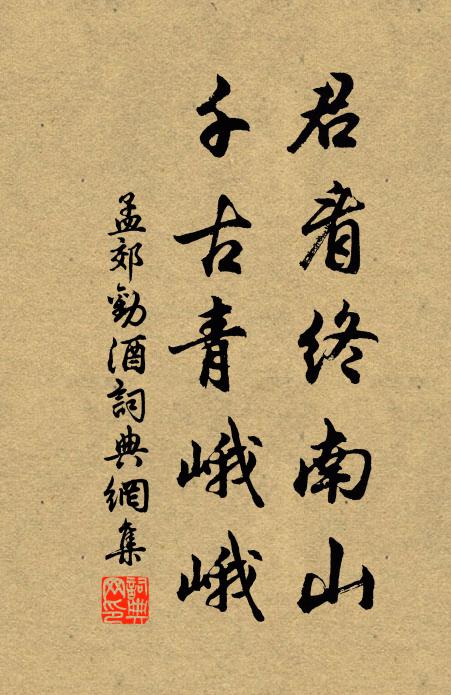 君看終南山
千古青峨峨
孟郊勸酒詞典網集
詞典網印